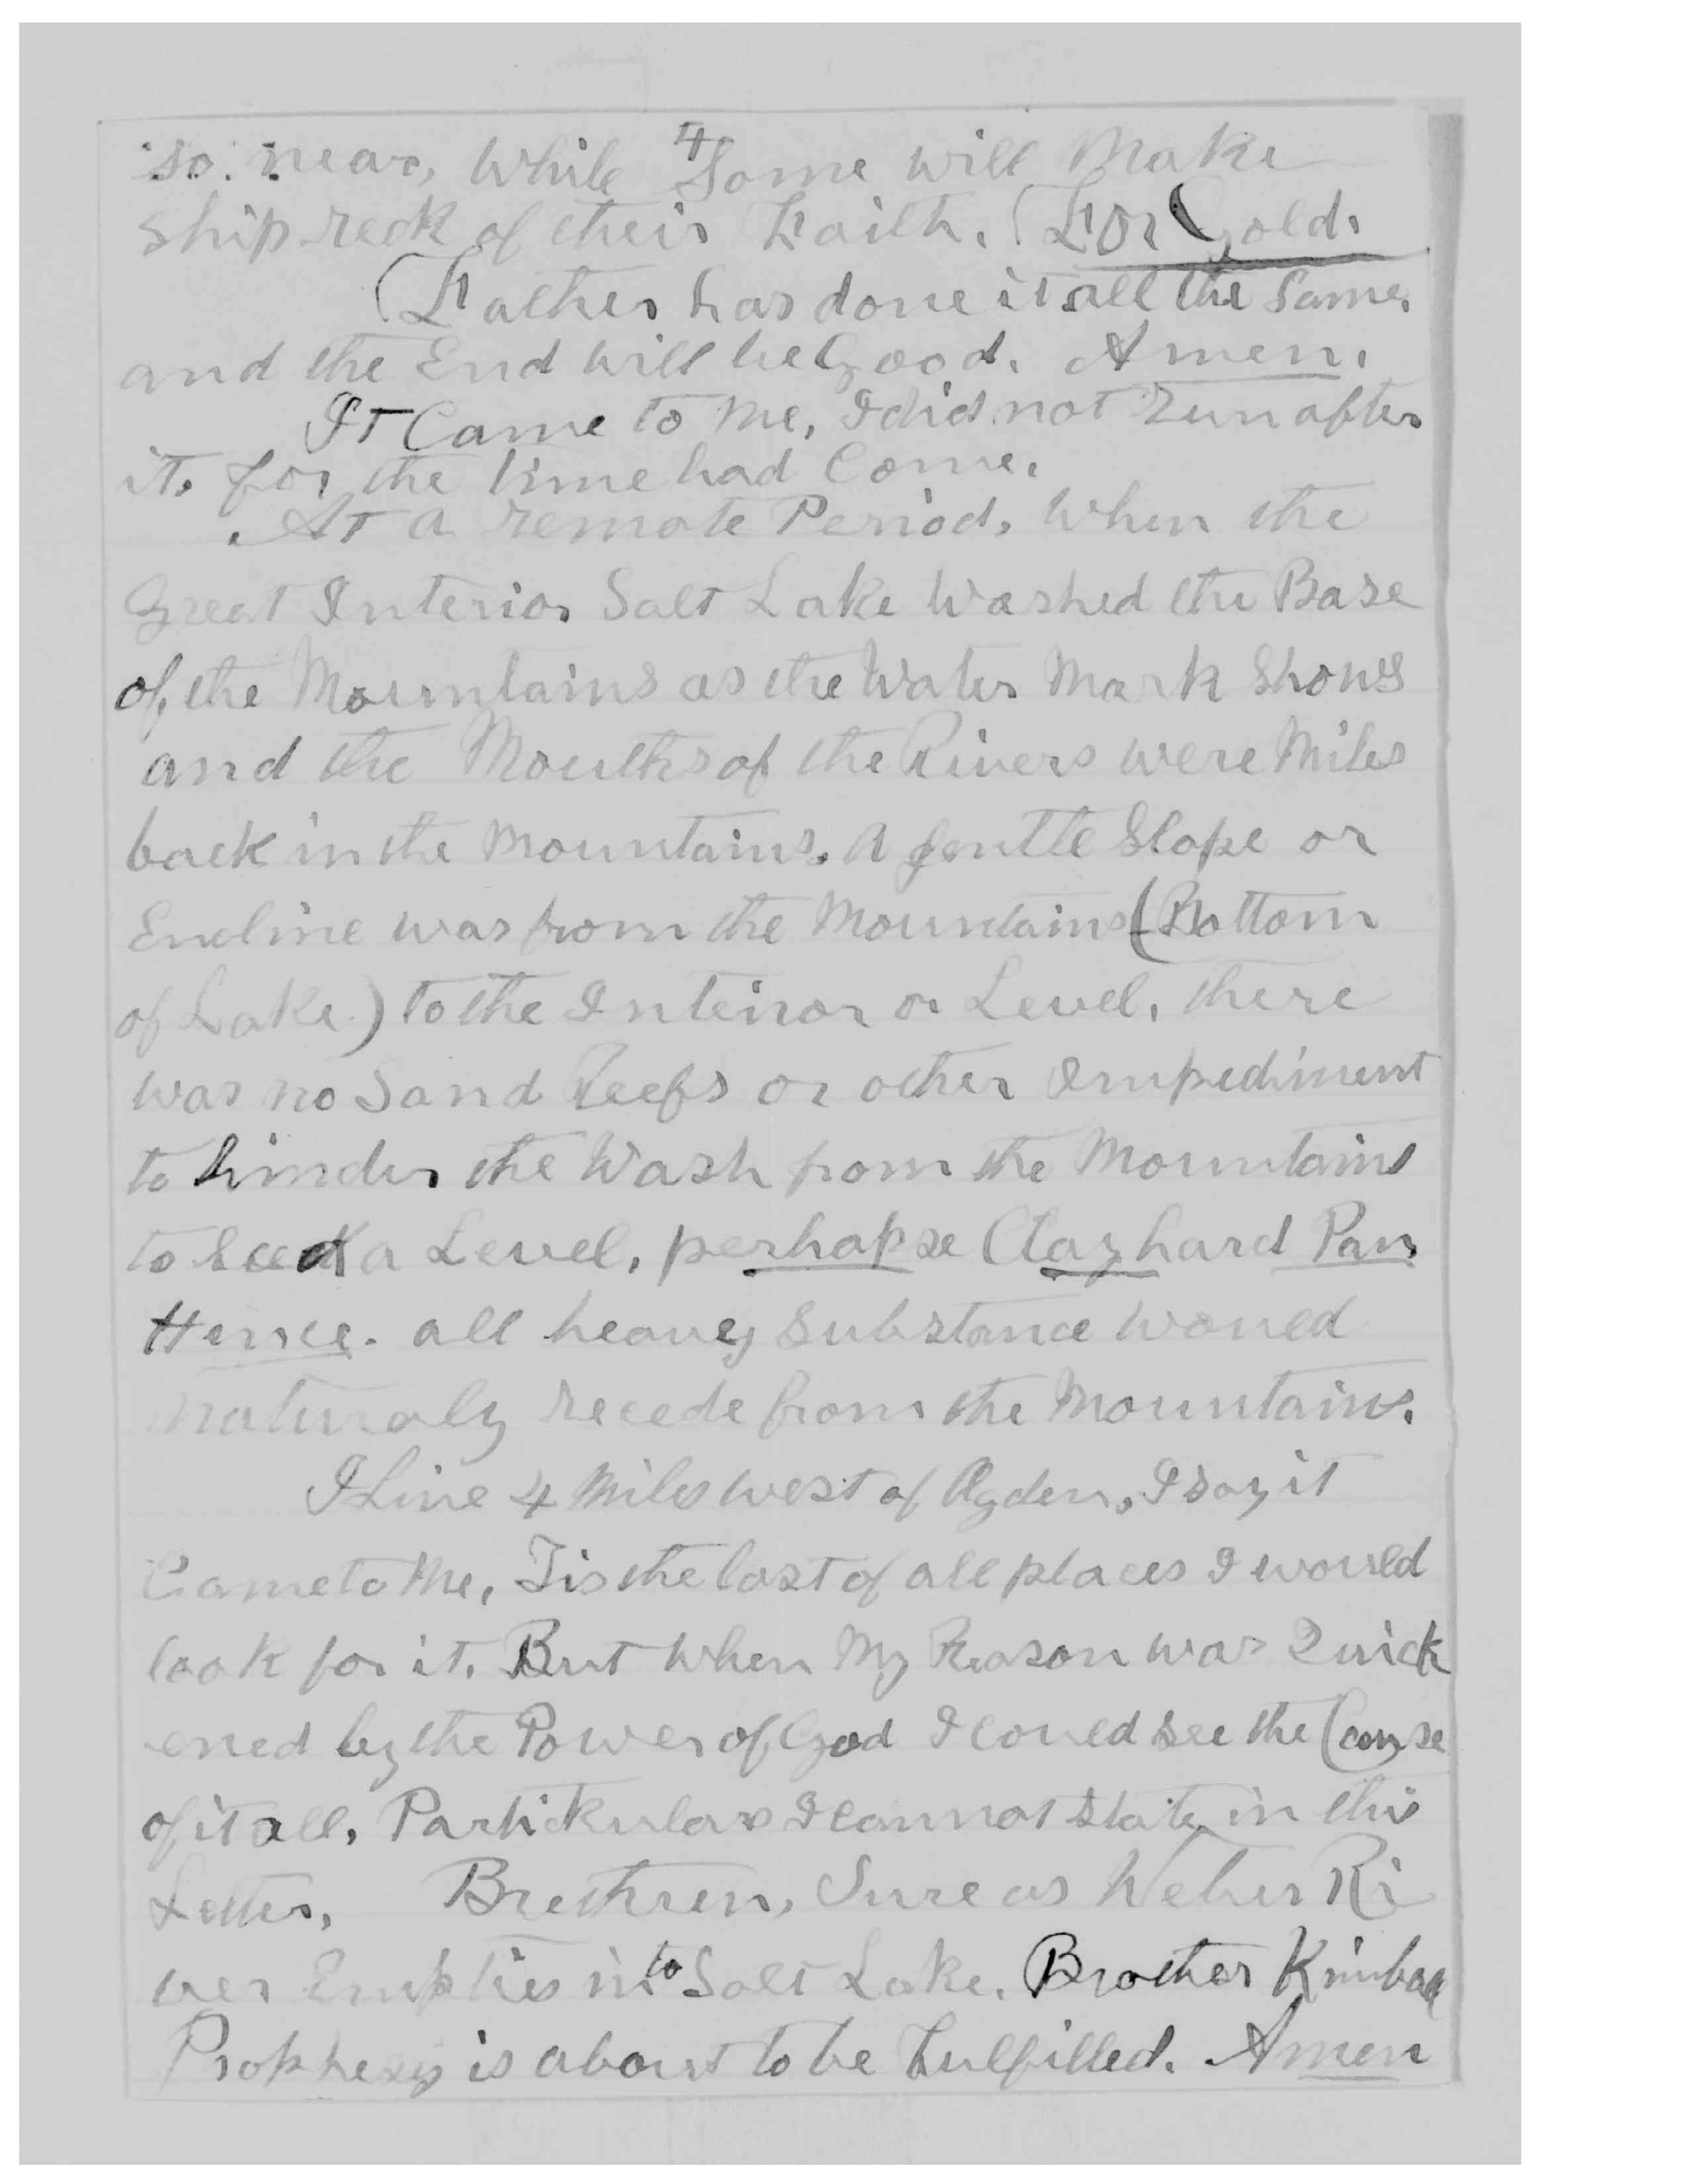 4
so near, While Some will Make
shipreck of their Faith. (For Gold.
(Father has done it all the Same,
and the End will be Good. Amen.
It Came to Me, I did not run after
it, for the time had Come.
At a remote Period, When the
Great Interior Salt Lake Washed the Base
of the Mountains as the Water Mark Shows
and the Mouths of the Rivers were Miles
back in the Mountains. A gentle Slope or
Encline was from the Mountains (Bottom
of Lake.) to the Interior or Level, there
was no Sand Reefs or other Impediment
to hinder the Wash from the Mountains
to Seek a Level, perhapse Clay hard Pan,
Hence. all heavey Substance would
naturaly recede from the Mountains.
I Live 4 Miles west of Ogden, I say it
Came to Me, Tis the last of all places I would
look for it. But When My Reason was Quick
ened by the Power of God I could see the (Cause
of it all, Partickulars I cannot State in this
Letter, Brethren, Sure as Weber Ri
ver Empties into Salt Lake. Brother Kimball
Prophesy is about to be Fulfilled. Amen